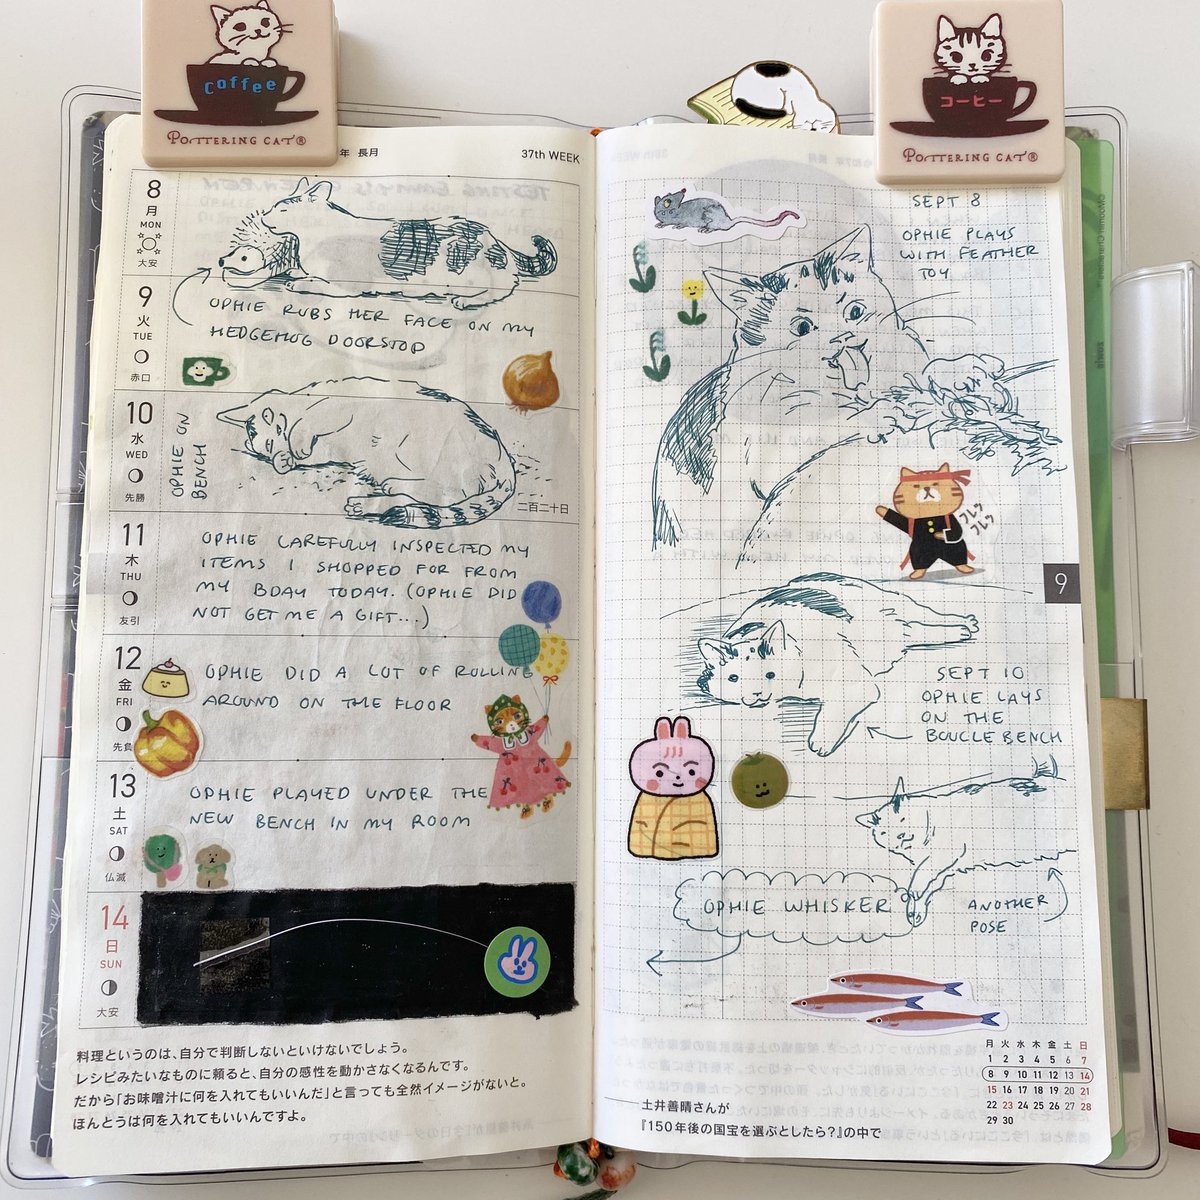 Coffee
POTTERING CAT®
コーヒー
POTTERING CAT®
年 長月
37th WEEK
8
月
MON
大安
OPHIE RUBS HER FACE ON MY
HEDGEHOG DOORSTOP
9
火
TUE
赤口
10
水
WED
先勝
OPHIE ON
BENCH
二百二十日
11
木
THU
友引
OPHIE CAREFULLY INSPECTED MY
ITEMS I SHOPPED FOR FROM
MY BDAY TODAY. (OPHIE DID
NOT GET ME A GIFT...)
12
金
FRI
先負
OPHIE DID A LOT OF ROLLING
AROUND ON THE FLOOR
13
土
SAT
仏滅
OPHIE PLAYED UNDER THE
NEW BENCH IN MY ROOM
14
日
SUN
大安
料理というのは、自分で判断しないといけないでしょう。
レシピみたいなものに頼ると、自分の感性を動かさなくなるんです。
だから「お味噌汁に何を入れてもいいんだ」と言っても全然イメージがないと。
ほんとうは何を入れてもいいんですよ。
SEPT 8
OPHIE PLAYS
WITH FEATHER
TOY
フレッ
フレッ
9
SEPT 10
OPHIE LAYS
ON THE
BOUCLE BENCH
OPHIE WHISKER
ANOTHER
POSE
月 火 水 木 金 土 日
1 2 3 4 5 6 7
8 9 10 11 12 13 14
15 16 17 18 19 20 21
22 23 24 25 26 27 28
29 30
——土井善晴さんが
『150年後の国宝を選ぶとしたら?』の中で